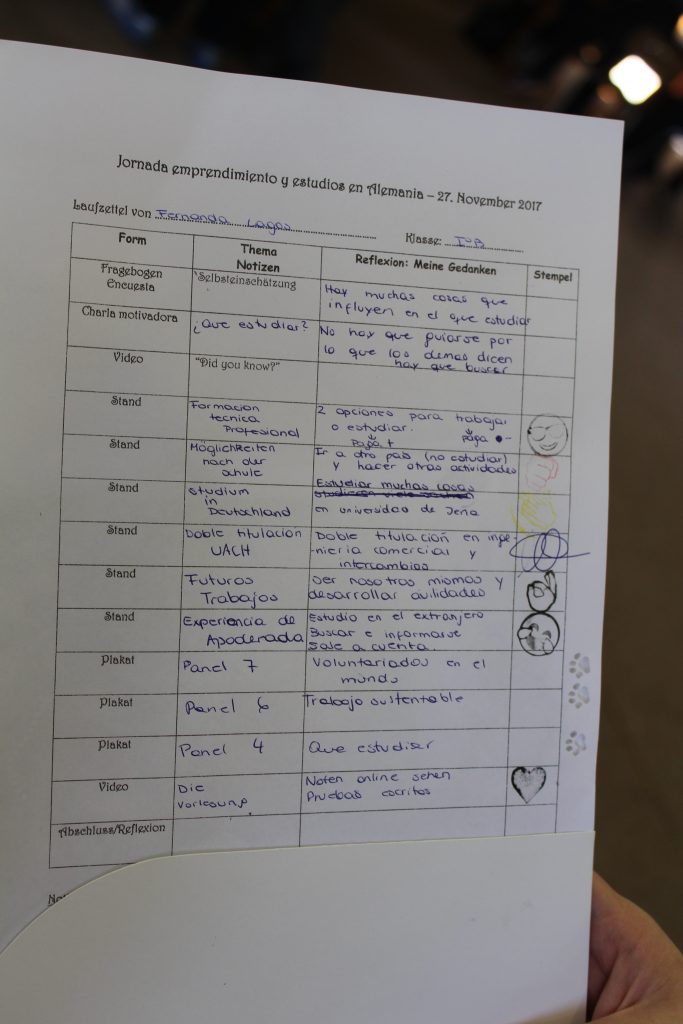 Jornada emprendimiento y estudios en Alemania – 27. November 2017
Laufzettel von Fernanda Lagos Klasse: IºB
Form Thema Notizen Reflexion: Meine Gedanken Stempel
Fragebogen Encuesta "Selbsteinschätzung Hay muchas cosas que
influyen en el que estudiar
Charla motivadora ¿Que estudiar? No hay que guiarse por
lo que los demas dicen
hay que buscar
Video "Did you know?"
Stand Formacion 2 opciones para trabajar
tecnica o estudiar.
Profesional Papa + papa -
Stand Möglichkeiten Ir a otro pais (no estudiar)
nach der y hacer otras actividades
schule
Stand studium Estudiar muchas cosas
in
Deutschland en universidad de Jena
Stand Doble titulación Doble titulación en inge-
UACH niería comercial y
intercambios
Stand Futuros Ser nosotros mismos y
Trabajos desarrollar avilidades
Stand Experiencia de Estudio en el extranjero
Apoderada Buscar e informarse
sale a cuenta.
Plakat Panel 7 Voluntariados en el
mundo
Plakat Panel 6 Trabajo sustentable
Plakat Panel 4 Que estudiar
Video Die Noten online sehen
Vorlesung Pruebas escritas
Abschluss/Reflexion